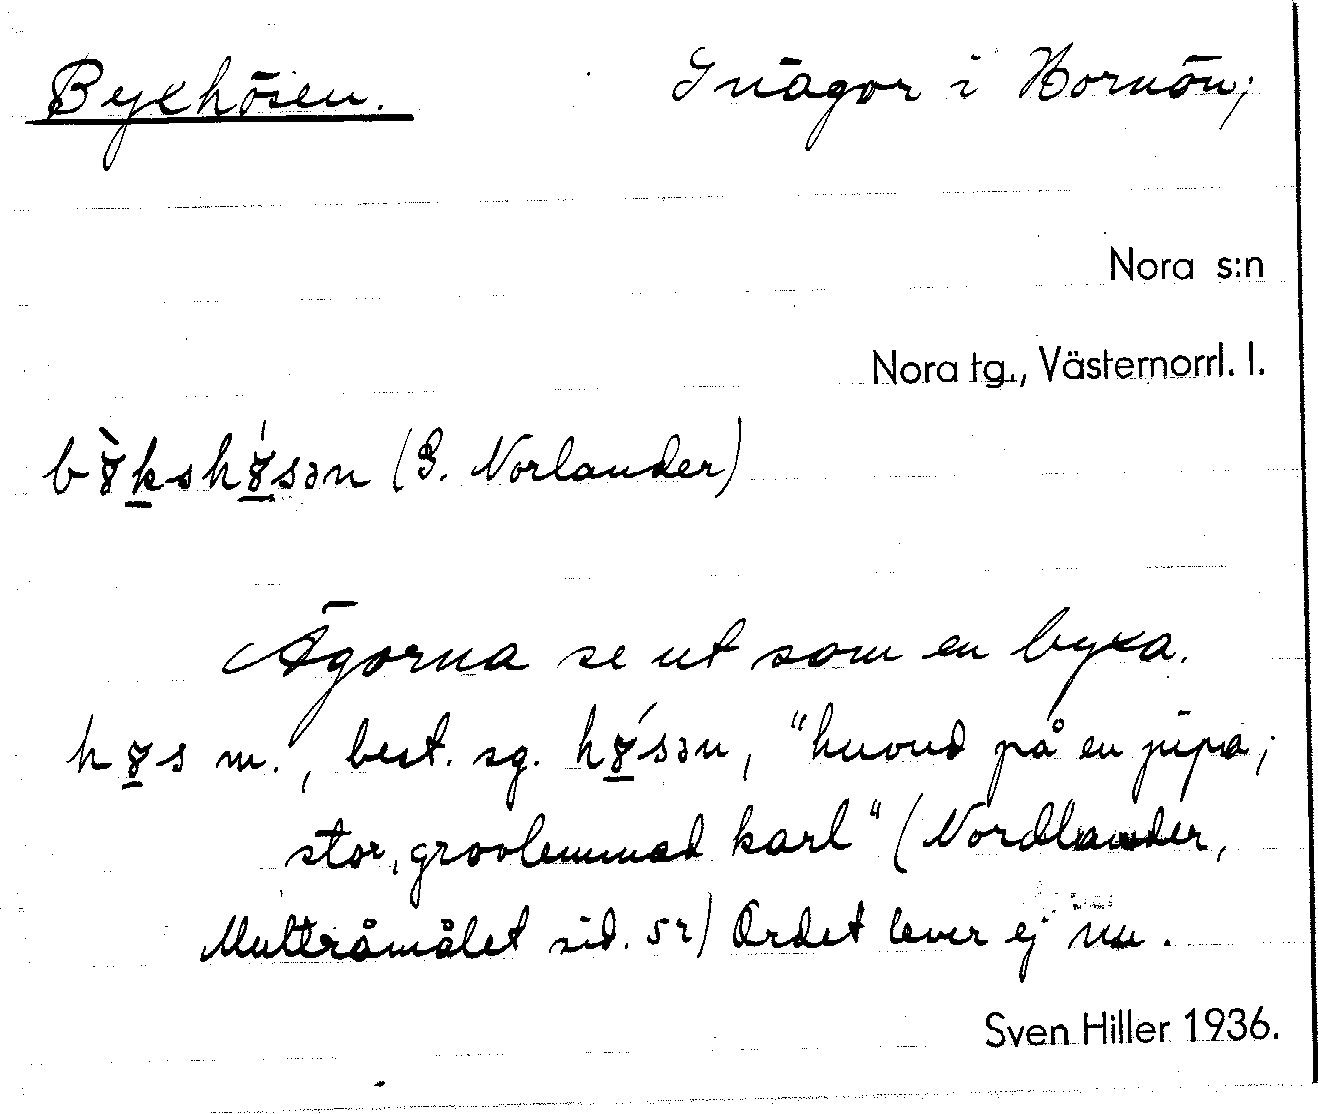 Byxhösen. Inägor i Hornön;
Nora s:n
Nora tg., Västernorrl. l.
(G. Norlander)
Ägorna se ut som en byxa.
m., best. sg. "huvud på en pipa;
stor, grovlemmad karl" (Nordlander,
Multråmålet sid. 52) Ordet lever ej nu.
Sven Hiller 1936.